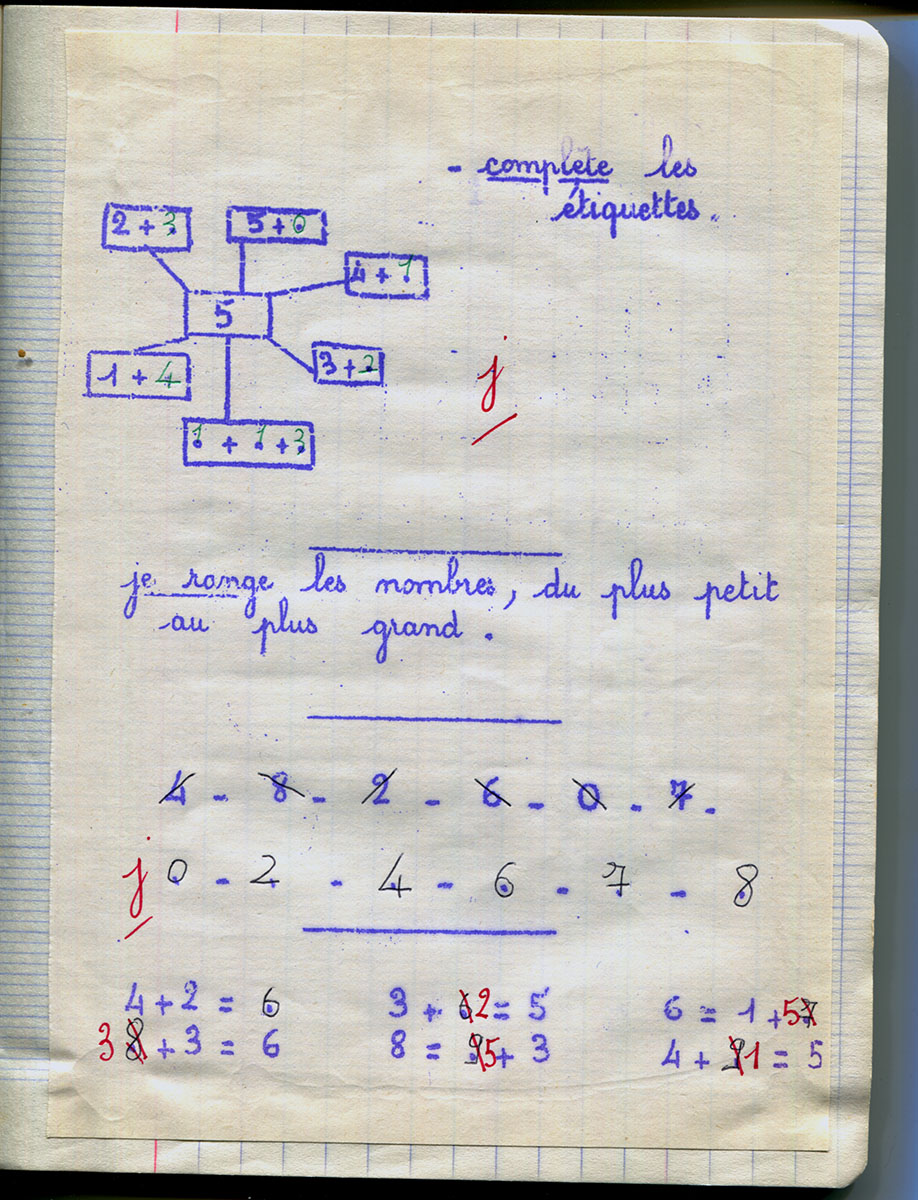 - complète les
étiquettes.
2 + 3
5 + 0
4 + 1
5
1 + 4
3 + 2
1 + 1 + 3
j
je range les nombres, du plus petit
au plus grand.
4 - 8 - 2 - 6 - 0 - 7 -
j 0 - 2 - 4 - 6 - 7 - 8
4 + 2 = 6 3 + 2 = 5 6 = 1 + 5
3 8 + 3 = 6 8 = 5 + 3 4 + 1 = 5